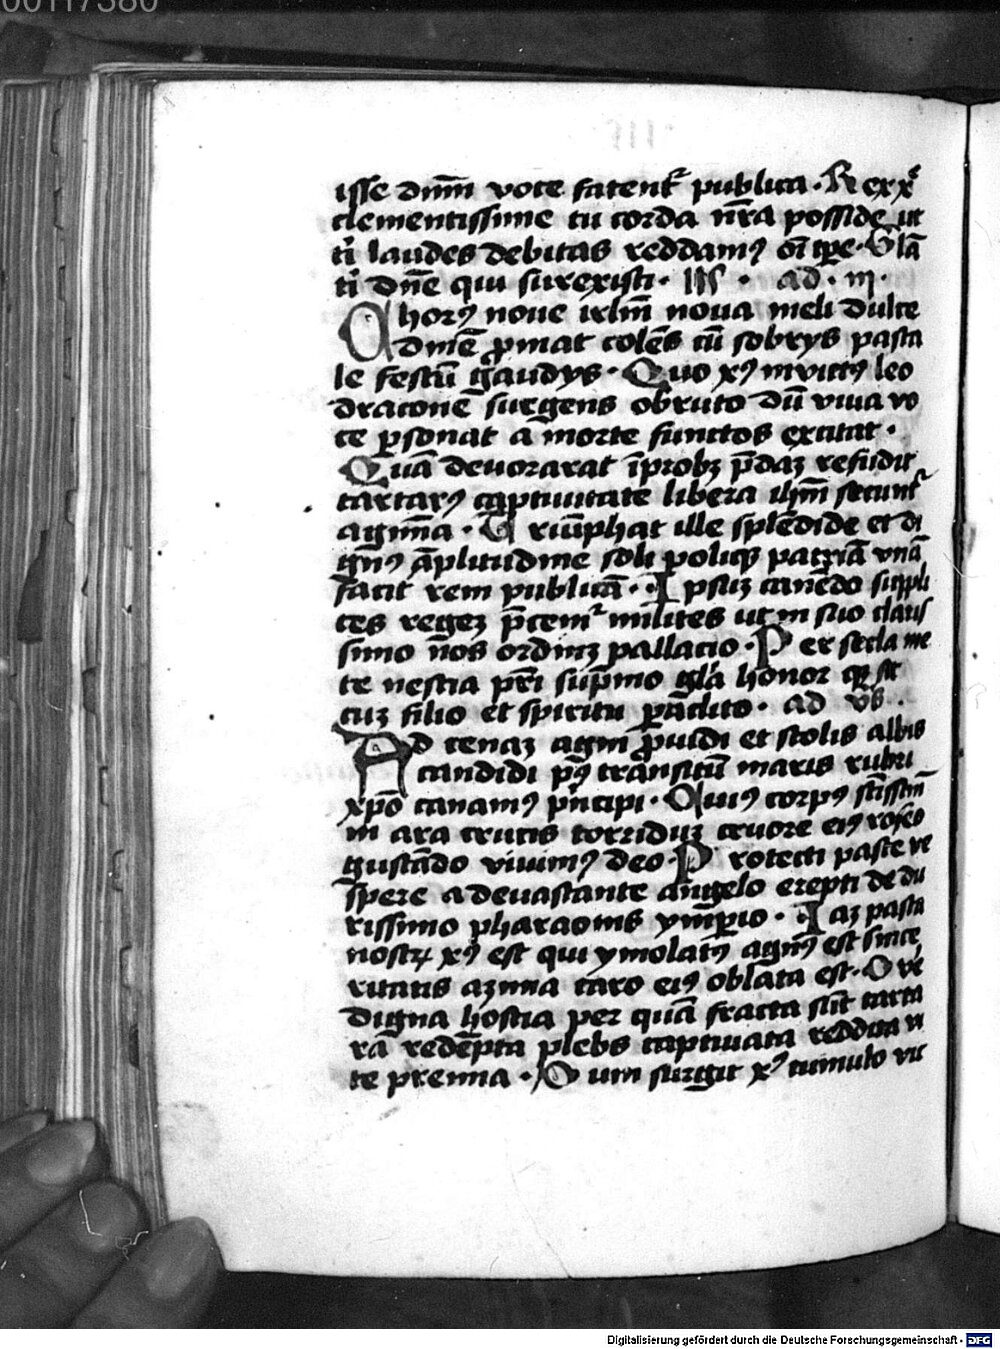 00117380
isse dnm̄ voce fatent᷑ publica. Rex xᵉ
clementissime tu corda nr̄a posside ut
tī laudes debitas reddamꝯ oī tp̄e. Glā
tī dn̄e qui surexisti. ad. m.
Chorꝯ noue irlm̄ noua meli dulce
dinē ꝓmat colēs cū sobrys pasca
le festū gaudys. Quo xꝯ invictꝯ leo
draconē surgens obruto dū viva vo
ce ꝑsonat a morte functos excitat.
Quā devorarat īprobꝫ p̄daꝫ refudit
tartarꝯ captivitate libera ihm̄ secunt᷑
agmīa. Triūphat ille splēdide et di
gnꝯ āplitudine soli poliqꝫ patriā vnā
facit rem publicā. Ipsuꝫ canēdo suppli
ces regeꝫ p̄cem᷑ milites ut in suo claris
simo nōs ordinꝫ pallacio. Per secla me
te nescia pr̄i sup̄mo glā honor qꝫ sit
cuꝫ filio et spiritu ꝑāclito. ad vs̄.
Ad cenaꝫ agni ꝓuidi et stolis albis
candidi pꝯ trānsitū maris rubri
xp̄o canamꝯ pn̄cipi. Cuiꝯ corpꝯ sc̄issm̄
in ara crucis torriduꝫ cruore eiꝯ roseo
gustādo vivimꝯ deo. Protecti pasce ve
spere a devastante angelo erepti de du
rissimo pharaonis ymꝑio. Iaꝫ pasca
nostrꝝ xꝯ est qui ymolatꝯ agnꝯ est since
ritatis azima caro eiꝯ oblata est. O ve
digna hostia per quā fracta sūt tarta
rā redēpta plebs captivata reddita vi
te premia. Cum surgit xꝯ tumulo vic
Digitalisierung gefördert durch die Deutsche Forschungsgemeinschaft - DFG